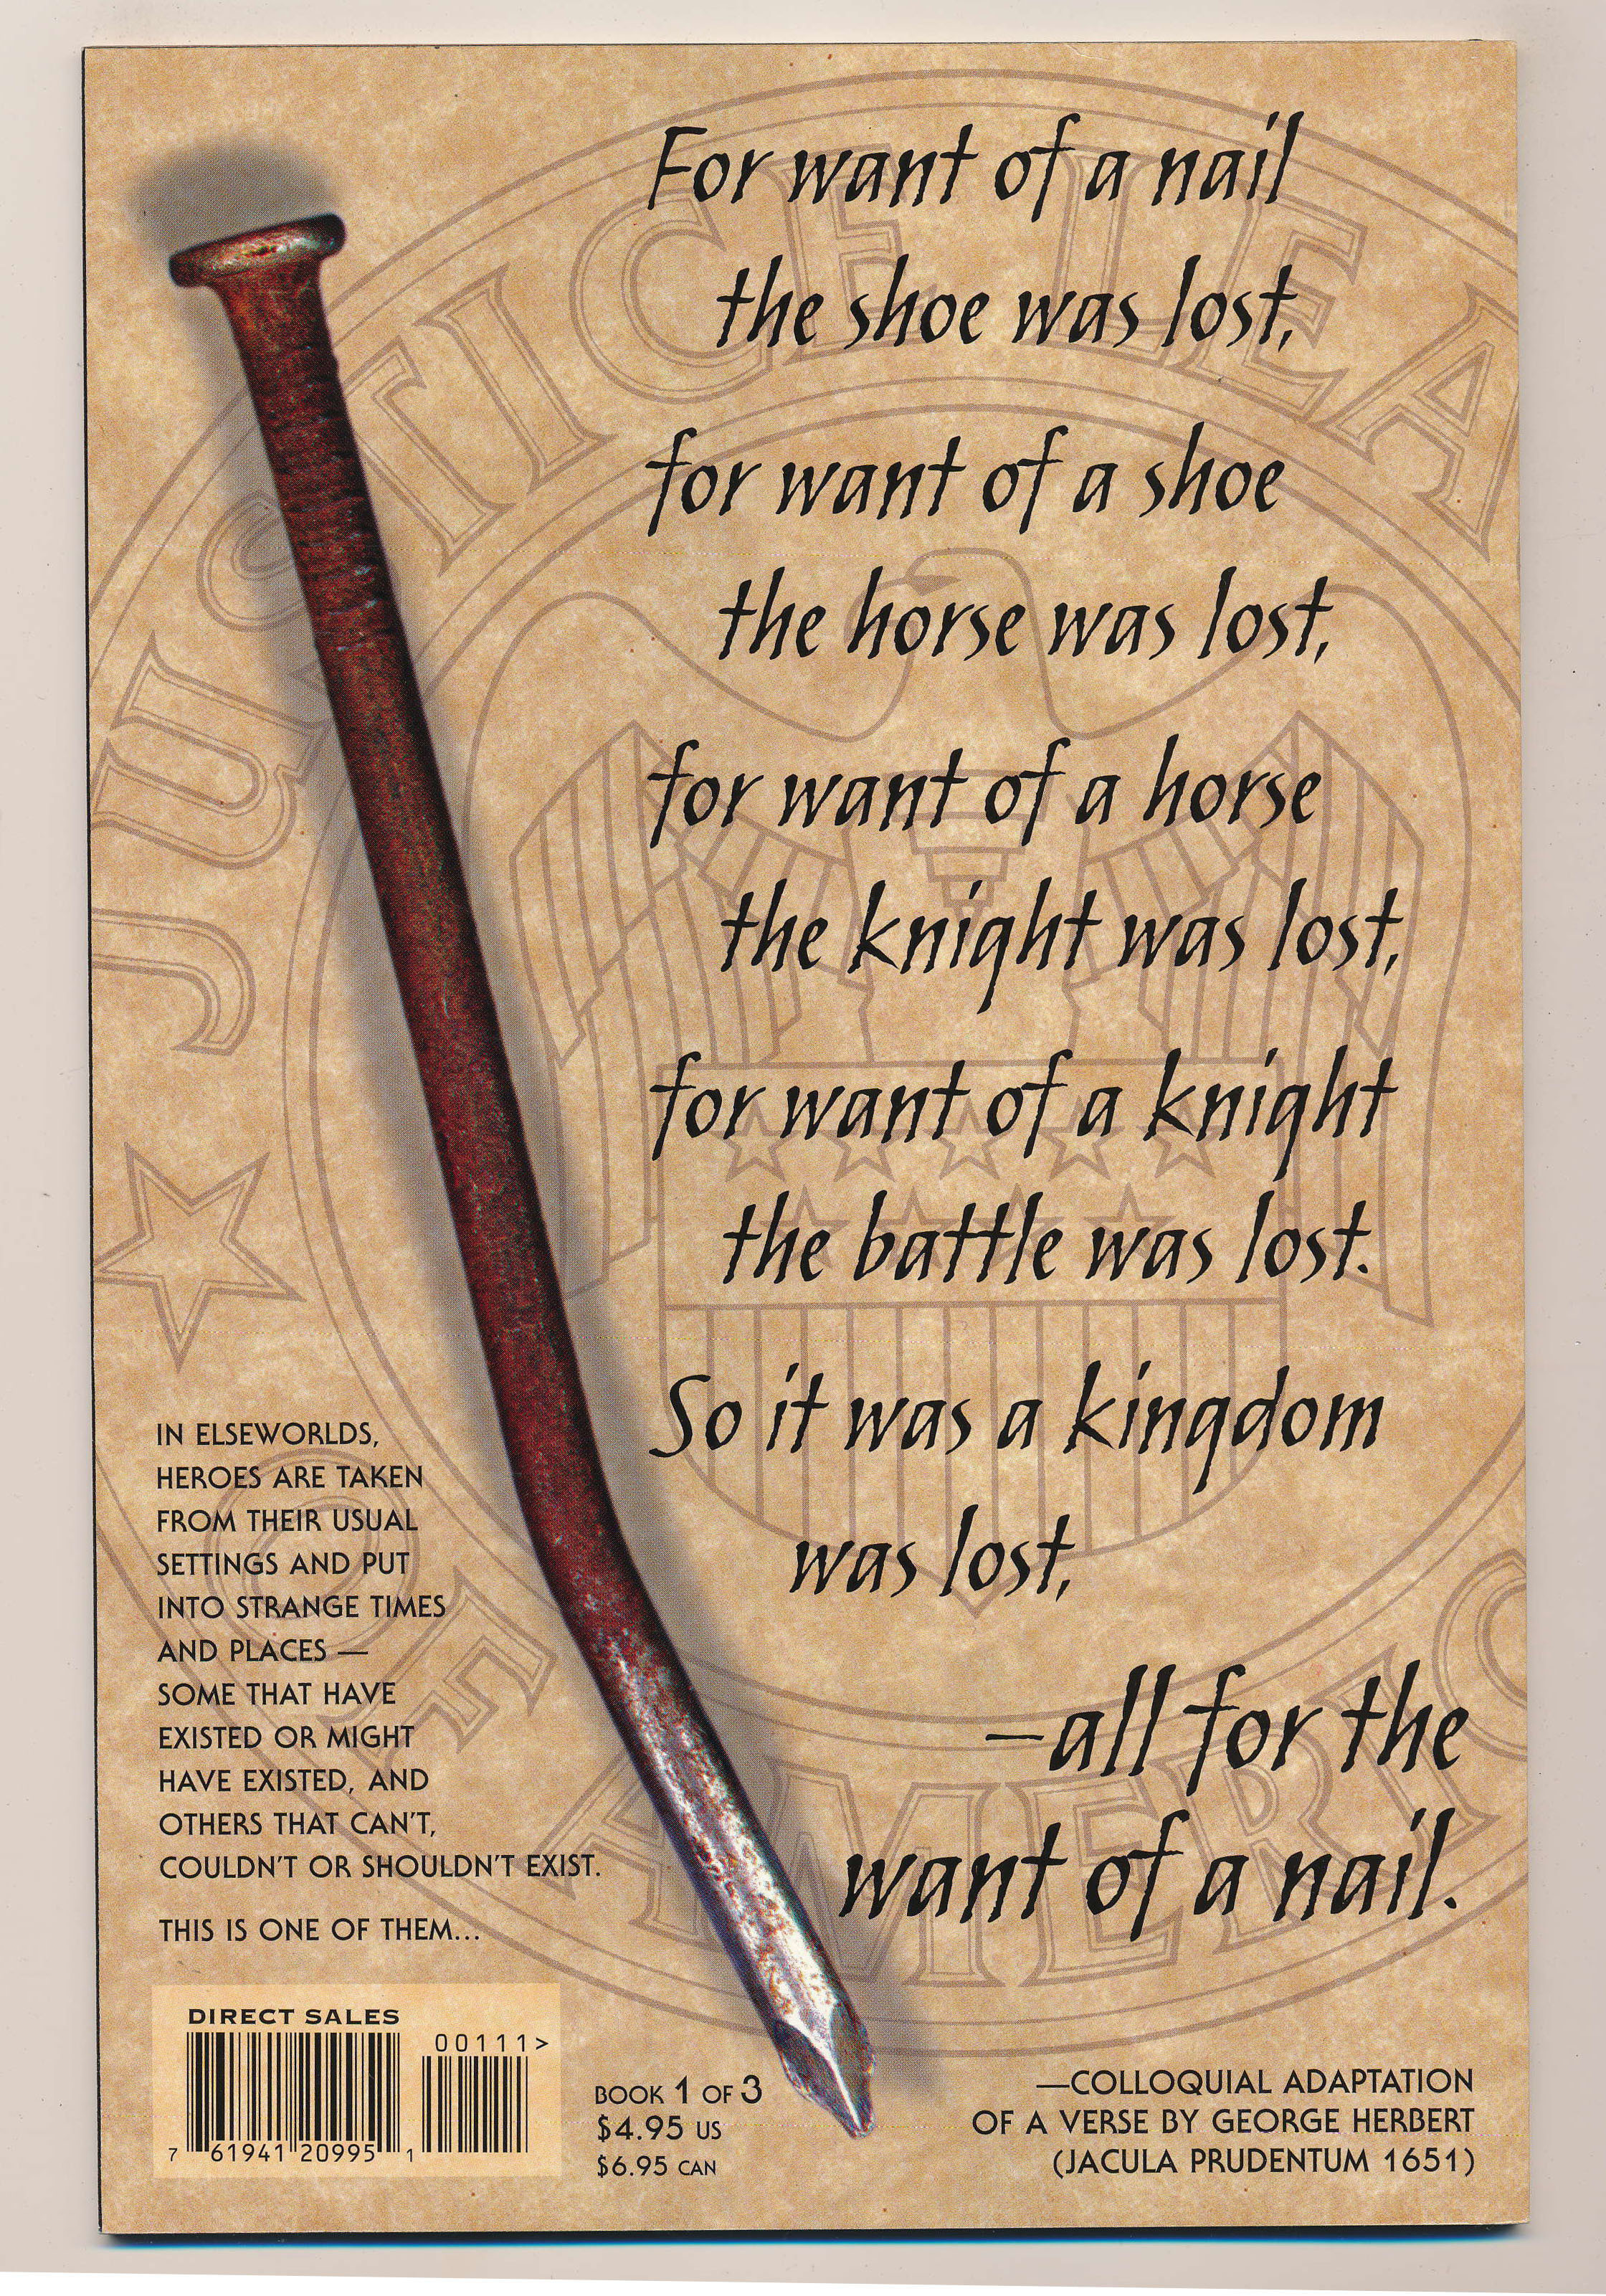 For want of a nail
the shoe was lost,
for want of a shoe
the horse was lost,
for want of a horse
the knight was lost,
for want of a knight
the battle was lost.
So it was a kingdom
was lost,
—all for the
want of a nail.
IN ELSEWORLDS,
HEROES ARE TAKEN
FROM THEIR USUAL
SETTINGS AND PUT
INTO STRANGE TIMES
AND PLACES —
SOME THAT HAVE
EXISTED OR MIGHT
HAVE EXISTED, AND
OTHERS THAT CAN'T,
COULDN'T OR SHOULDN'T EXIST.
THIS IS ONE OF THEM...
DIRECT SALES
00111>
7 61941 20995 1
BOOK 1 OF 3
$4.95 US
$6.95 CAN
—COLLOQUIAL ADAPTATION
OF A VERSE BY GEORGE HERBERT
(JACULA PRUDENTUM 1651)
JUSTICE LEA
OF AMERIC